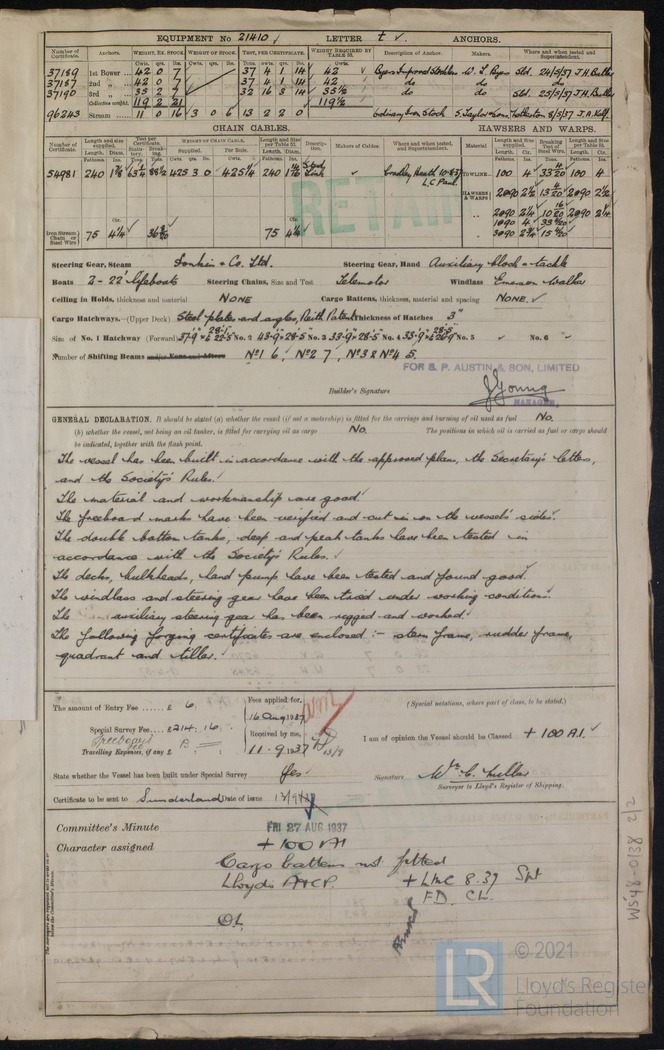 EQUIPMENT No 21410 LETTER t ANCHORS.
Number of Certificate. Anchors. WEIGHT, EX. STOCK. WEIGHT OF STOCK. TEST, PER CERTIFICATE. WEIGHT REQUIRED BY TABLE 53. Description of Anchor. Makers. Where and when tested and Superintendent.
37189 1st Bower 42 0 7 37 4 1 14 42 W. L. Byers Sld. 24/5/37 J.H. Butler
37187 2nd " 42 0 7 37 4 1 14 42 do do
37190 3rd " 35 2 7 32 16 3 14 35½ do do Sld. 25/5/37 J.H. Butler
Collective weight. 119 2 21 119½
96243 Stream 11 0 16 3 0 6 13 2 2 0 Ordinary Iron Stock S. Taylor & Sons, Netherton 8/5/37 J.A. Kelf.
CHAIN CABLES. HAWSERS AND WARPS.
Number of Certificate. Length and size supplied. Test per Certificate. WEIGHT OF CHAIN CABLE. Length and Size per Table 53. Description. Makers of Cables. Where and when tested, and Superintendent. Material Length and Size supplied. Breaking Test of Steel Wire. Length and Size per Table 53.
54981 240 425 3 0 425¼ 240 Stud Link Cradley Heath 10.8.37 L.C. Paul. TOWLINE 100 4 100 4
HAWSERS & WARPS 2@90 2½ 2@90 2½
" 2@90 2¼ 2@90 2¼
" 1@90 4
Iron Stream Chain or Steel Wire 75 4¼ 75 4¼ " 3@90 2¾
RETAIN
Steering Gear, Steam Donkin & Co. Ltd. Steering Gear, Hand Auxiliary block & tackle
Boats 2 - 22' lifeboats Steering Chains, Size and Test Telemotor Windlass Emerson Walker
Ceiling in Holds, thickness and material NONE Cargo Battens, thickness, material and spacing NONE.
Cargo Hatchways.—(Upper Deck) Steel plates and angles, Reith Patent Thickness of Hatches 3"
Size of No. 1 Hatchway (Forward) No. 2 43'-9" × 28'-5" No. 3 33'-9" × 28'-5" No. 4 No. 5 No. 6
Number of Shifting Beams and/or Fore-and-Afters No 1 6, No 2 7, No 3 & No 4 5.
FOR S. P. AUSTIN & SON, LIMITED
Builder's Signature J Young
MANAGER.
GENERAL DECLARATION. It should be stated (a) whether the vessel (if not a motorship) is fitted for the carriage and burning of oil used as fuel No.
(b) whether the vessel, not being an oil tanker, is fitted for carrying oil as cargo No. The positions in which oil is carried as fuel or cargo should
be indicated, together with the flash point.
The vessel has been built in accordance with the approved plans, the Secretary's letters,
and the Society's Rules.
The material and workmanship are good.
The freeboard marks have been verified and cut in on the vessel's sides.
The double bottom tanks, deep and peak tanks have been tested in
accordance with the Society's Rules.
The decks, bulkheads, hand pump, have been tested and found good.
The windlass and steering gear have been tried under working conditions.
The auxiliary steering gear has been rigged and worked.
The following forging certificates are enclosed :- stern frame, rudder frame,
quadrant and tiller.
The amount of Entry Fee £ 6 Fees applied for, (Special notations, where part of class, to be stated.)
16 Aug 1937
Special Survey Fee £ 214 . 16 Received by me,
Freeboard fee I am of opinion the Vessel should be Classed + 100 A.1.
Travelling Expenses, if any £ 11-9-1937
State whether the Vessel has been built under Special Survey Yes. Signature
Surveyor to Lloyd's Register of Shipping.
Certificate to be sent to Sunderland Date of issue
Committee's Minute FRI 27 AUG 1937
Character assigned +100 A1
Cargo battens not fitted
Lloyds A&CP. + LMC 8.37 Spt
F.D. CL.
W548-0138 2/2
© 2021
LR
Lloyd's Registe
Foundation